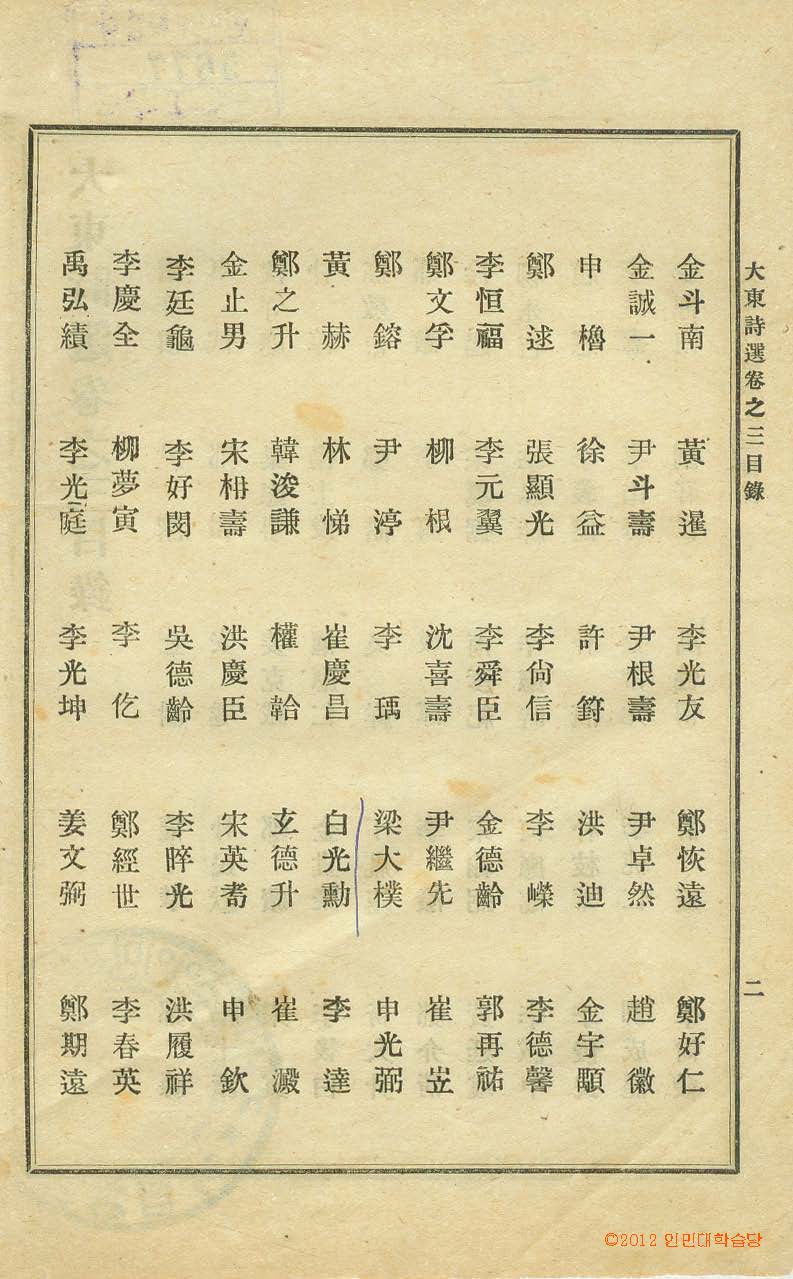 大東詩選卷之三目錄 二
金斗南 黃暹 李光友 鄭恢遠 鄭好仁
金誠一 尹斗壽 尹根壽 尹卓然 趙徽
申櫓 徐益 許篈 洪迪 金宇顒
鄭逑 張顯光 李尙信 李嶸 李德馨
李恒福 李元翼 李舜臣 金德齡 郭再祐
鄭文孚 柳根 沈喜壽 尹繼先 崔岦
鄭鎔 尹渟 李瑀 梁大樸 申光弼
黃赫 林悌 崔慶昌 白光勳 李達
鄭之升 韓浚謙 權韐 玄德升 崔澱
金止男 宋柟壽 洪慶臣 宋英耈 申欽
李廷龜 李好閔 吳德齡 李晬光 洪履祥
李慶全 柳夢寅 李仡 鄭經世 李春英
禹弘績 李光庭 李光坤 姜文弼 鄭期遠
©2012 인민대학습당